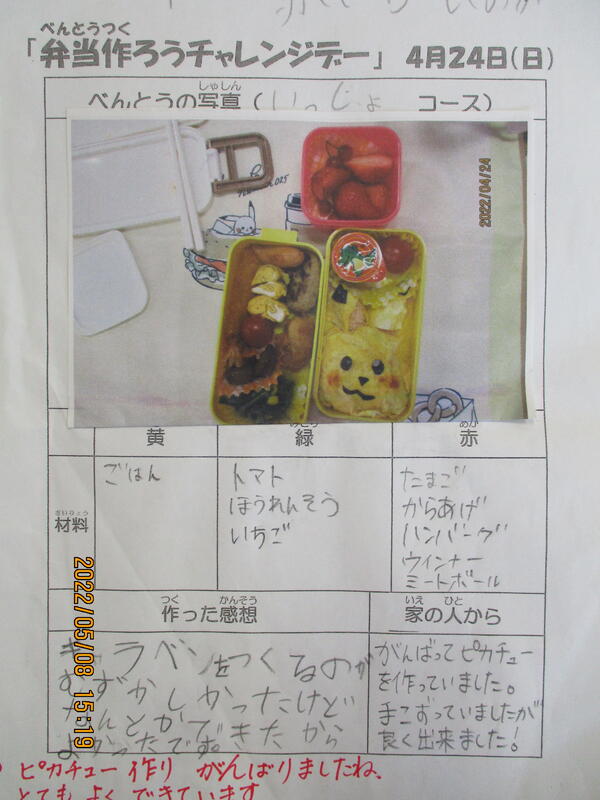 べんとうつく
「弁当作ろうチャレンジデー」 4月24日(日)
しゃしん
べんとうの写真(いっしょ コース)
2022/04/24
黄 緑 赤
ざいりょう
材料
ごはん
トマト
ほうれんそう
いちご
たまご
からあげ
ハンバーグ
ウインナー
ミートボール
つく かんそう
作った感想
いえ ひと
家の人から
キャラベンをつくるのが
むずかしかったけど
なんとかできたから
よかったです。
がんばってピカチュー
を作っていました。
手こずっていましたが
良く出来ました!
2022/05/08 15:19
ピカチュー作り がんばりましたね。
とてもよくできています